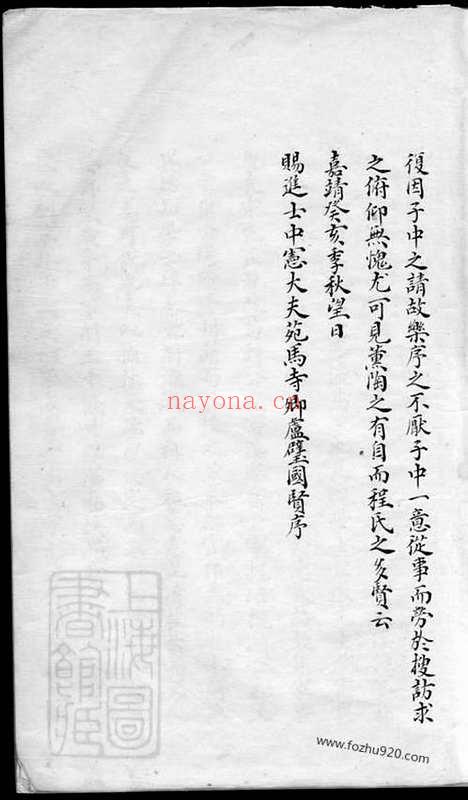 復因子中之請故樂序之不厭子中一意從事而勞於搜訪求
之俯仰無愧尤可見薰陶之有自而程氏之多賢云
嘉靖癸亥季秋望日
賜進士中憲大夫苑馬寺卿盧璧國賢序
nayona.cn
上海圖
書館藏
www.fozhu920.com